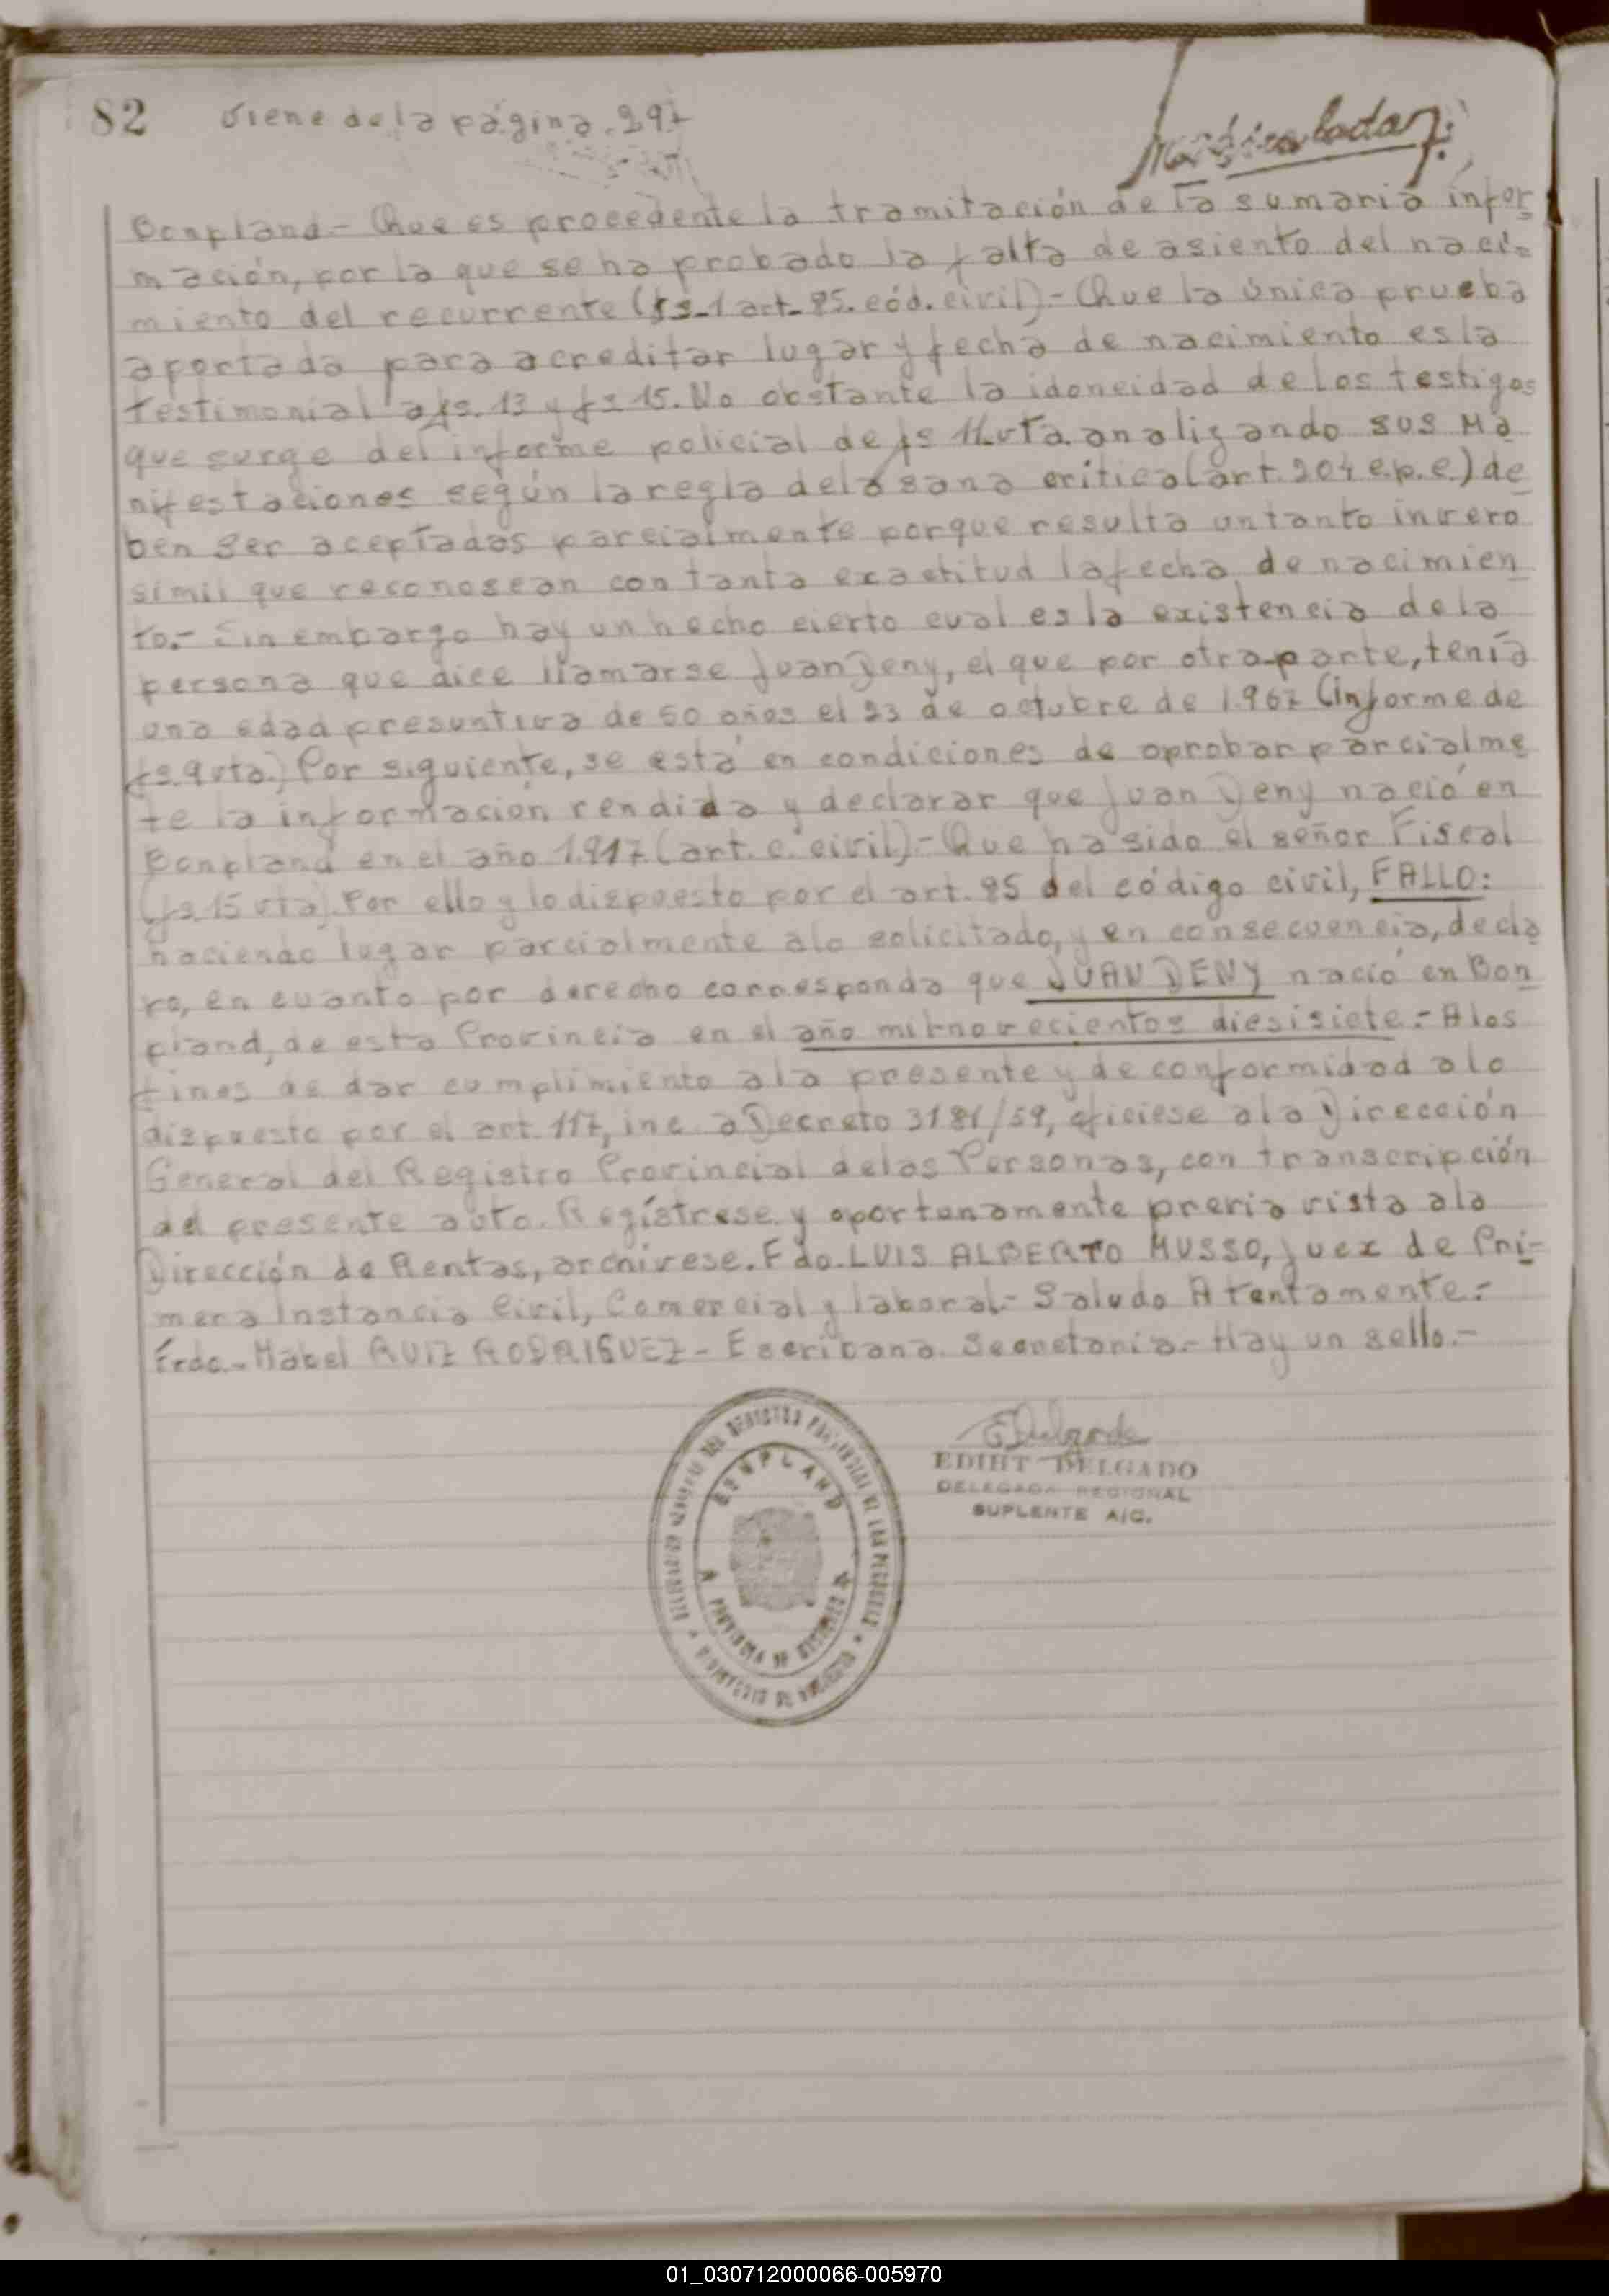 82 Viene de la página. 297
Bonpland.- Que es procedente la tramitación de la sumaria infor
mación, por la que se ha probado la falta de asiento del naci=
miento del recurrente (fs-1 art-85. cód. civil).- Que la única prueba
aportada para acreditar lugar y fecha de nacimiento es la
testimonial a fs. 13 y fs 15. No obstante la idoneidad de los testigos
que surge del informe policial de fs 11.vta. analizando sus ma
nifestaciones según la regla de la sana critica (art. 204 c.p.c.) de
ben ser aceptadas parcialmente porque resulta un tanto invero
simil que reconoscan con tanta exactitud la fecha de nacimien
to.- Sin embargo hay un hecho cierto cual es la existencia de la
persona que dice llamarse Juan Deny, el que por otra parte, tenía
una edad presuntiva de 50 años el 23 de octubre de 1.967 (informe de
fs. 9 vta.) Por siguiente, se está en condiciones de aprobar parcialme
te la información rendida y declarar que Juan Deny nació en
Bonpland en el año 1.917 (art. c. civil).- Que ha sido el señor Fiscal
(fs. 15 vta). Por ello y lo dispuesto por el art. 85 del código civil, FALLO:
haciendo lugar parcialmente a lo solicitado, y en consecuencia, decla
ro, en cuanto por derecho corresponda que JUAN DENY nació en Bon
pland, de esta Provincia en el año mil novecientos diesisiete.- A los
fines de dar cumplimiento a la presente y de conformidad a lo
dispuesto por el art. 117, inc. a Decreto 3181/59, ofíciese a la Dirección
General del Registro Provincial de las Personas, con transcripción
del presente auto. Regístrese y oportunamente previa vista a la
Dirección de Rentas, archivese. Fdo. LUIS ALBERTO MUSSO, Juez de Pri-
mera Instancia Civil, Comercial y laboral.- Saludo Atentamente.-
Frdo.- Mabel RUIZ RODRIGUEZ - Escribana. Secretaria.- Hay un sello.-
EDIHT DELGADO
DELEGADA REGIONAL
SUPLENTE A/C.
BONPLAND
PROVINCIA DE MISIONES
01_030712000066-005970